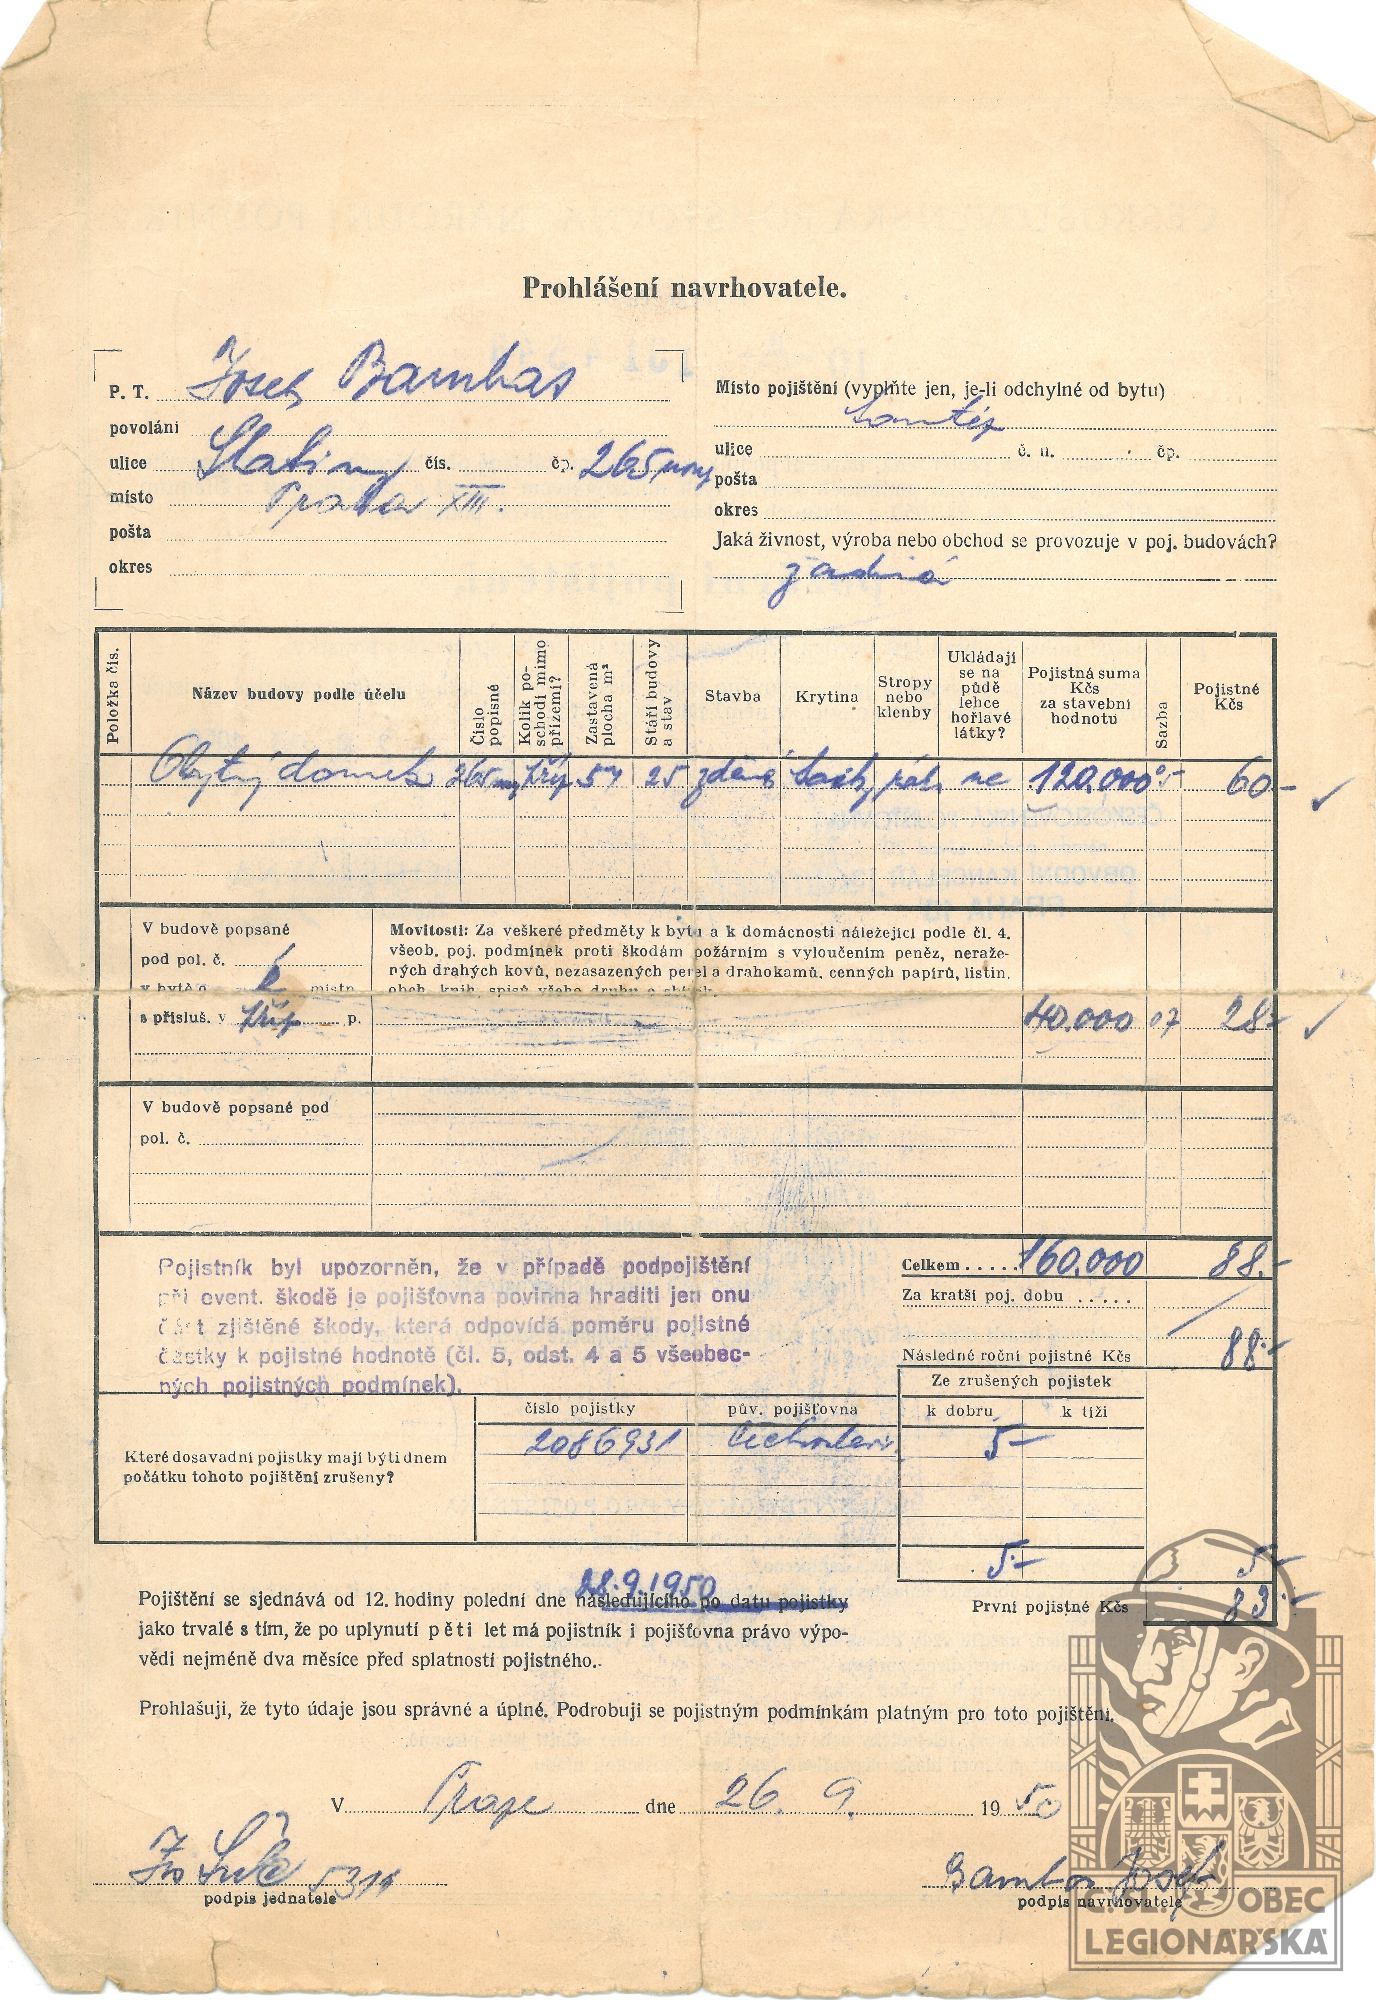 Prohlášení navrhovatele.
P. T. Josef Bambas
povolání
ulice Slatiny čís. čp. 265
místo Praha XIII.
pošta
okres
Místo pojištění (vyplňte jen, je-li odchylné od bytu)
tamtéž
ulice č. n. čp.
pošta
okres
Jaká živnost, výroba nebo obchod se provozuje v poj. budovách?
žádná
Položka čís.
Název budovy podle účelu
Číslo popisné
Kolik poschodí mimo přízemí?
Zastavená plocha m²
Stáří budovy a stav
Stavba
Krytina
Stropy nebo klenby
Ukládají se na půdě lehce hořlavé látky?
Pojistná suma Kčs za stavební hodnotu
Sazba
Pojistné Kčs
Obytný domek 265 příz 57 25 zděná tašky ne 120.000 05 60-
V budově popsané
pod pol. č.
v bytě o 2 místn.
s přísluš. v příz p.
Movitosti: Za veškeré předměty k bytu a k domácnosti náležející podle čl. 4.
všeob. poj. podmínek proti škodám požárním s vyloučením peněz, neraže-
ných drahých kovů, nezasazených perel a drahokamů, cenných papírů, listin,
obch. knih, spisů všeho druhu a sbírek.
40.000 07 28-
V budově popsané pod
pol. č.
Pojistník byl upozorněn, že v případě podpojištění
při event. škodě je pojišťovna povinna hraditi jen onu
část zjištěné škody, která odpovídá poměru pojistné
částky k pojistné hodnotě (čl. 5, odst. 4 a 5 všeobec-
ných pojistných podmínek).
Celkem ..... 160.000 88.-
Za kratší poj. dobu .....
Následné roční pojistné Kčs 88.-
Ze zrušených pojistek
k dobru k tíži
číslo pojistky pův. pojišťovna
Které dosavadní pojistky mají býti dnem
počátku tohoto pojištění zrušeny?
2086931 Čechoslavia 5-
5.- 5-
První pojistné Kčs 83.-
28.9.1950
Pojištění se sjednává od 12. hodiny polední dne následujícího po datu pojistky
jako trvalé s tím, že po uplynutí pěti let má pojistník i pojišťovna právo výpo-
vědi nejméně dva měsíce před splatností pojistného.
Prohlašuji, že tyto údaje jsou správné a úplné. Podrobuji se pojistným podmínkám platným pro toto pojištění.
V Praze dne 26. 9. 1950
podpis jednatele
Bambas Josef
podpis navrhovatele
Č. SL. OBEC
LEGIONÁŘSKÁ